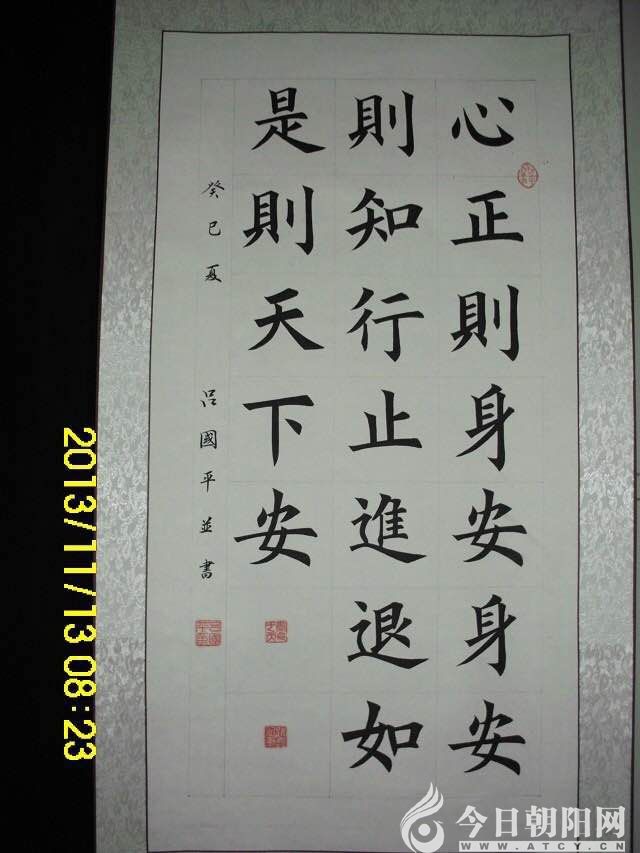 心正則身安身安
則知行止進退如
是則天下安
癸巳夏 呂國平並書
2013/11/13 08:23
今日朝阳网
WWW.ATCY.CN